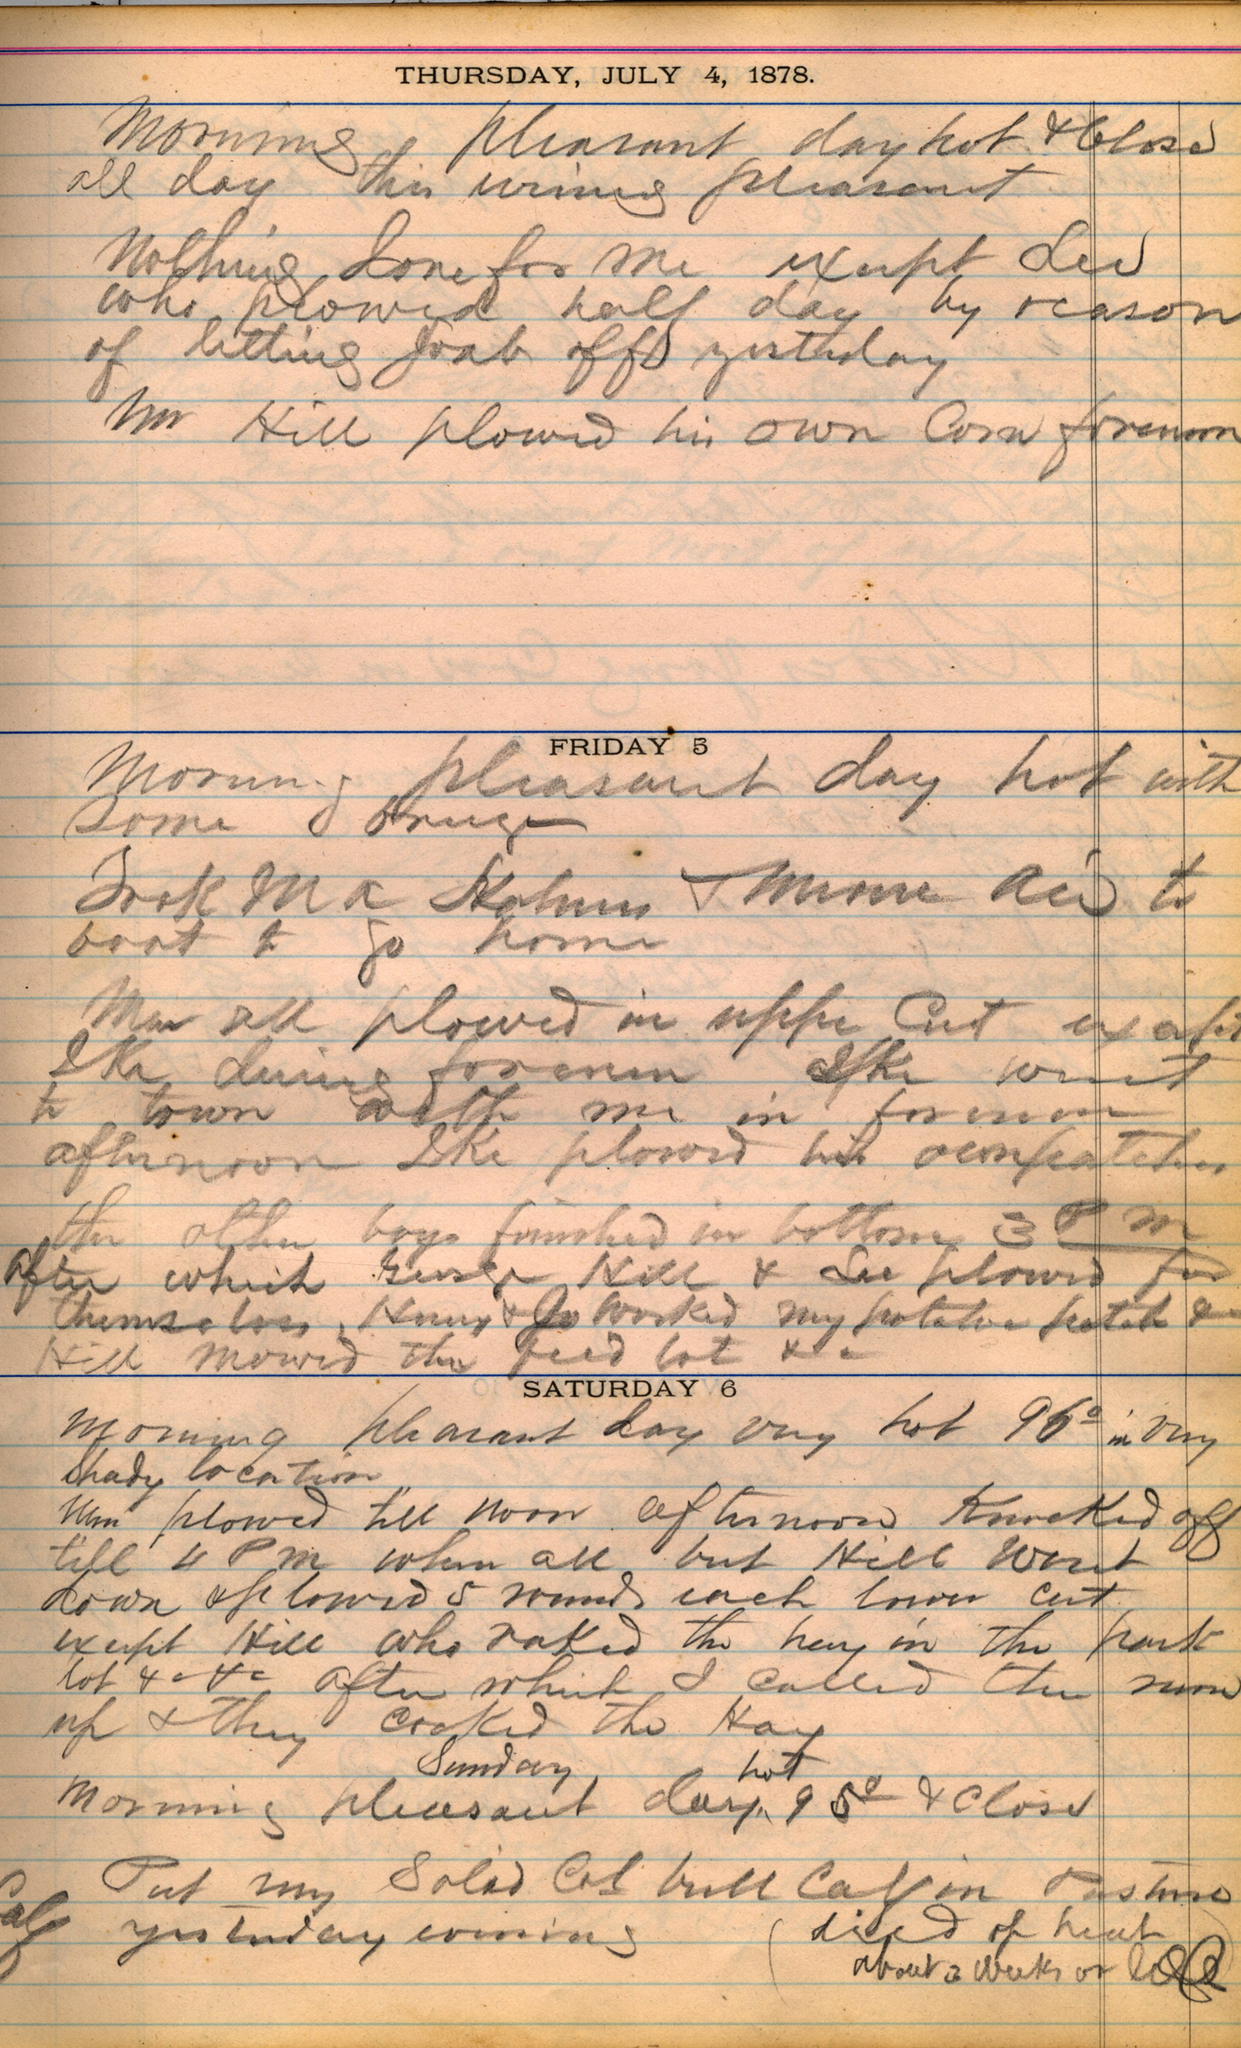 THURSDAY, JULY 4, 1878.
Morning pleasant day hot & Close
all day this evening pleasant
Nothing done for me except Lee
who plowed half day by reason
of letting Joab off yesterday
Mr Hill plowed his own Corn forenoon
FRIDAY 5
Morning pleasant day hot with
Some Breeze
Took M A & to
boat to go home
Men all plowed in upper Cut except
Ike during forenoon Ike went
to town with me in forenoon
afternoon Ike plowed his own patches
the other boys finished in bottom 3 P M
After which George Hill & Lee plowed for
themselves Henry & Jo worked my potatoe patch &c
Hill mowed the feed lot &c
SATURDAY 6
Morning pleasant day very hot 96° in very
shady location
Men plowed till noon afternoon Knocked off
till 4 P M when all but Hill Went
down & plowed 5 rounds each lower cut
except Hill who raked the hay in the park
lot &c &c After which I called the men
up & they cocked the Hay
Sunday
Morning pleasant day hot 95° & Close
Calf
Put my Solid Col bull Calf in Pasture
yesterday evening (died of heat
about 2 weeks or